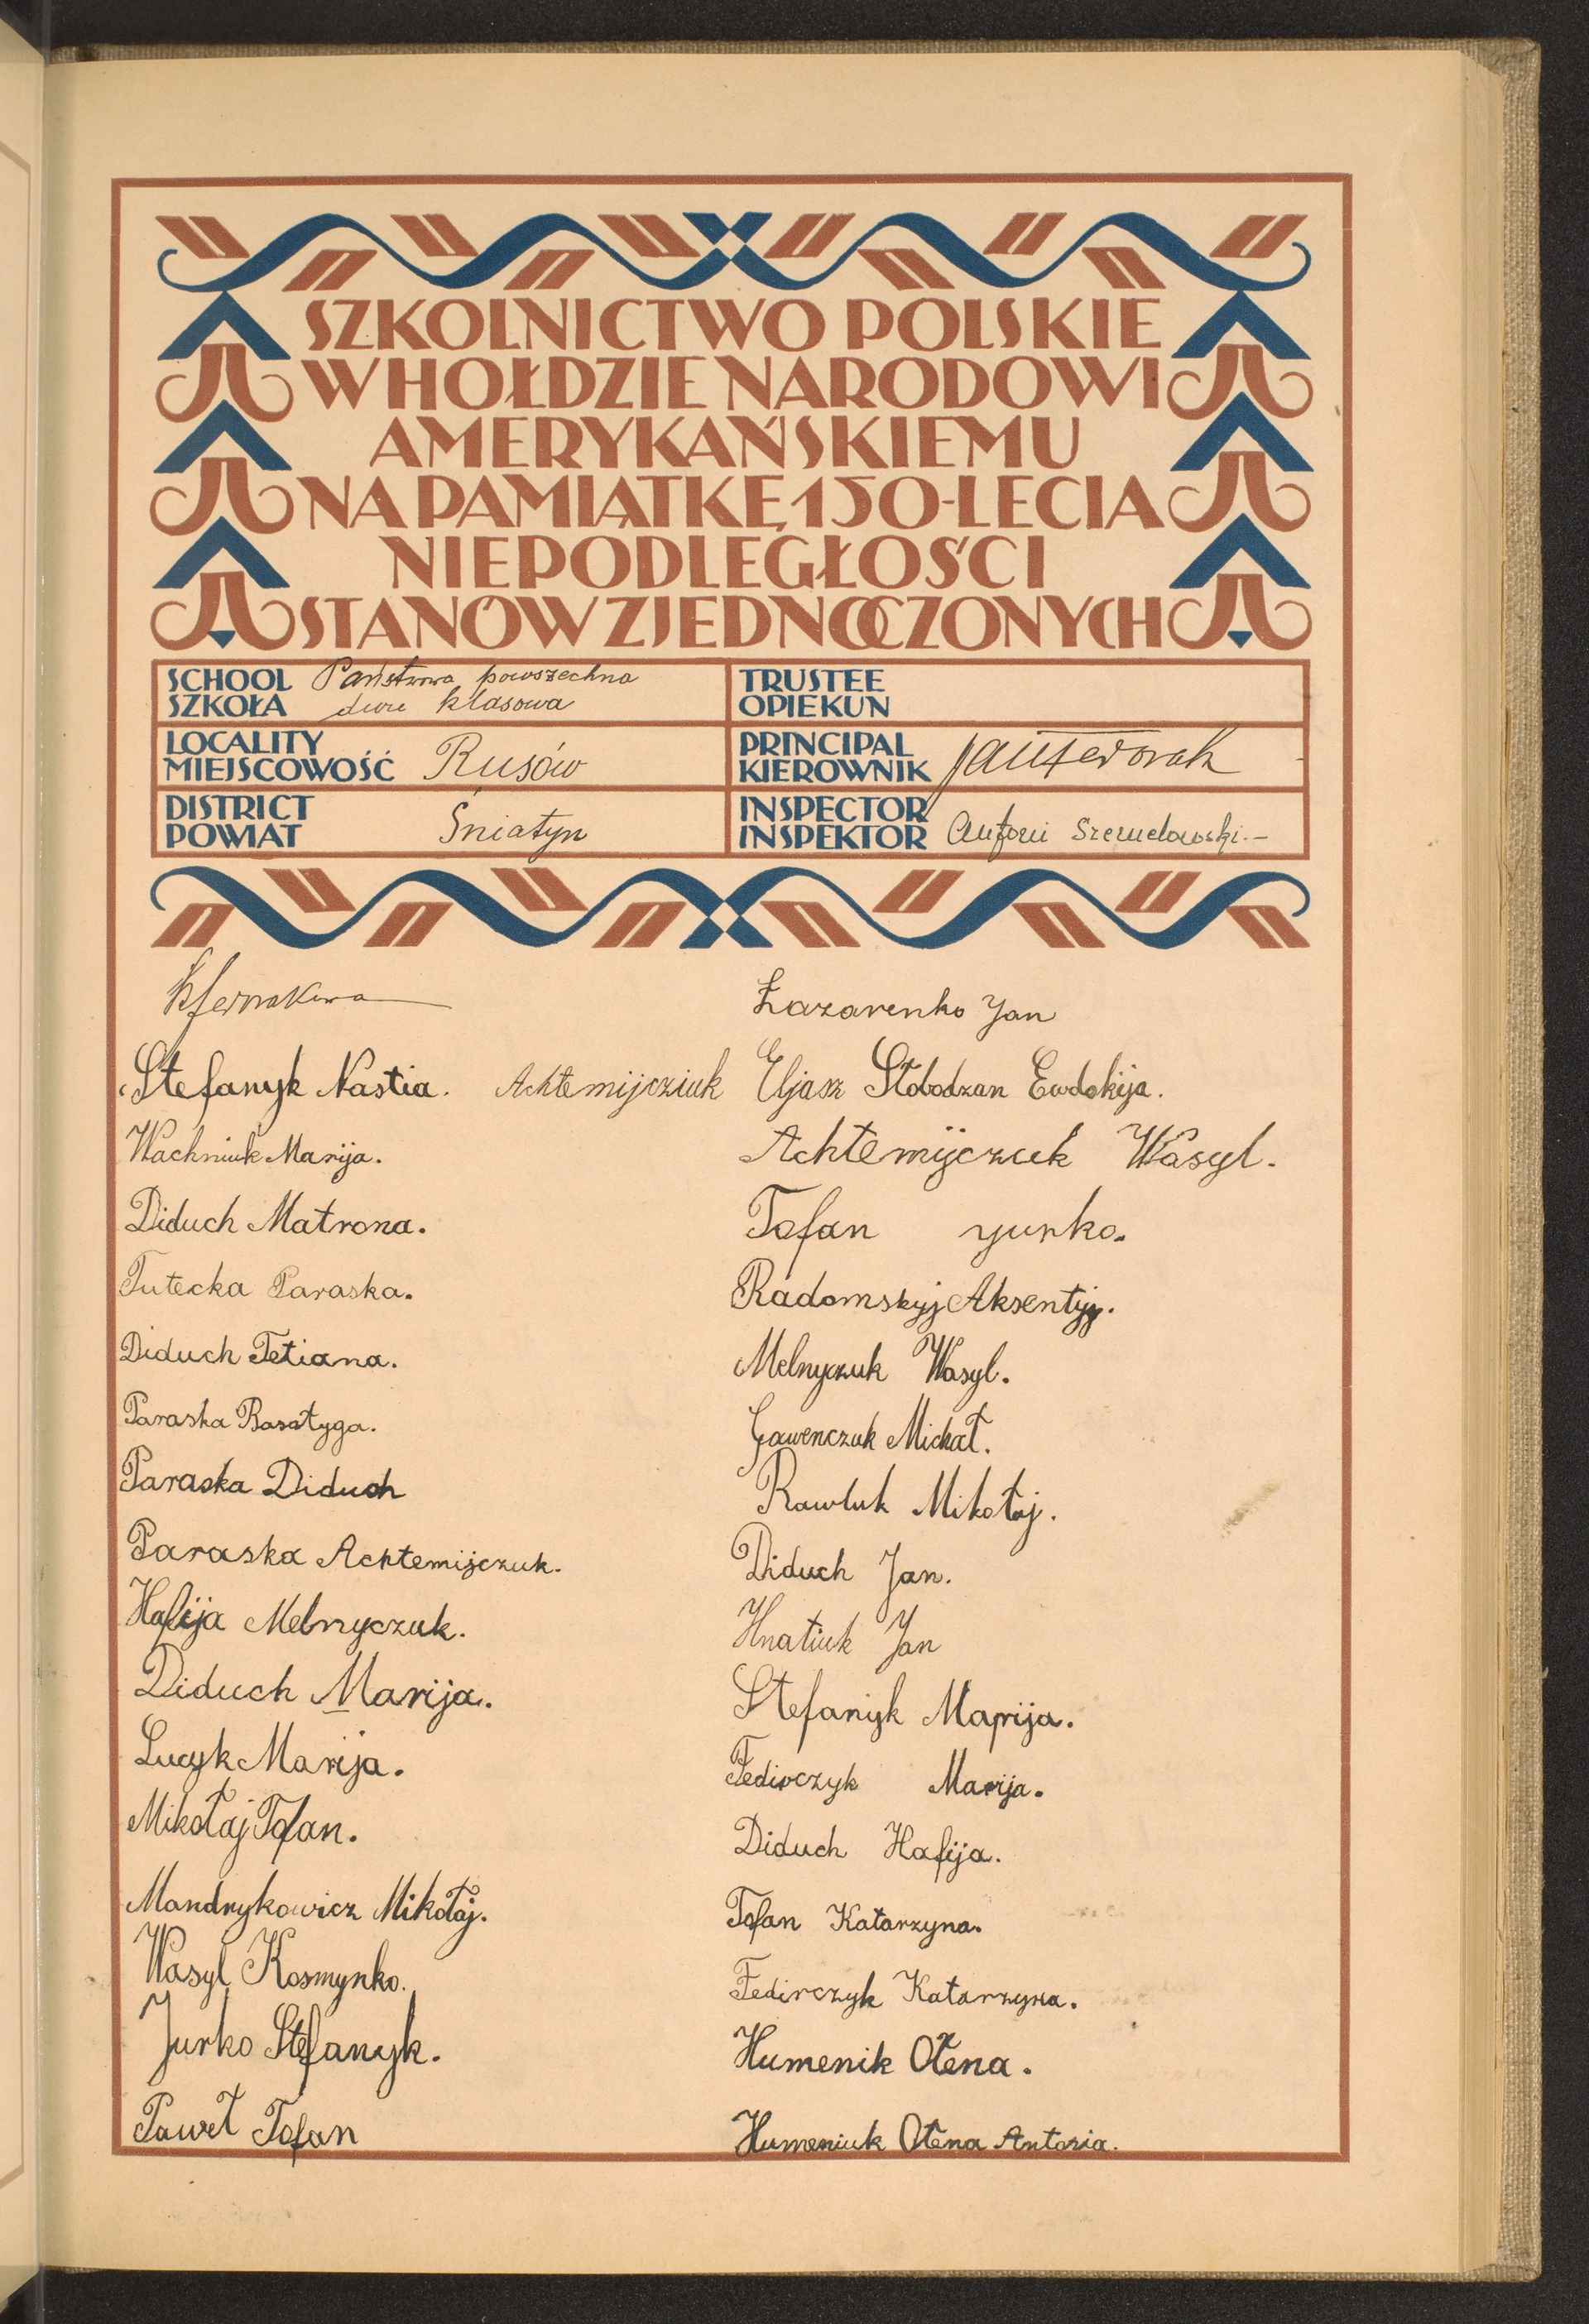 SZKOLNICTWO POLSKIE
W HOŁDZIE NARODOWI
AMERYKAŃSKIEMU
NA PAMIĄTKĘ 150-LECIA
NIEPODLEGŁOŚCI
STANÓW ZJEDNOCZONYCH
SCHOOL
SZKOŁA
Państwowa powszechna
dwu klasowa
TRUSTEE
OPIEKUN
LOCALITY
MIEJSCOWOŚĆ
Rusów
PRINCIPAL
KIEROWNIK
DISTRICT
POWIAT
Śniatyn
INSPECTOR
INSPEKTOR
Stefanyk Nastia.
Wachniuk Marija.
Diduch Matrona.
Tutecka Paraska.
Diduch Tetiana.
Paraska Basatyga.
Paraska Diduch
Paraska Achtemijczuk.
Hafija Melnyczuk.
Diduch Marija.
Lucyk Marija.
Mikołaj Tofan.
Mandrykowicz Mikołaj.
Wasyl Kosmynko.
Jurko Stefanyk.
Paweł Tofan
Łazarenko Jan
Achtemijcziuk Eljasz Słobodzan Ewdokija.
Achtemijczuk Wasyl.
Tofan yurko.
Radomskyj Aksentyj.
Melnyczuk Wasyl.
Gawenczuk Michał.
Rawluk Mikołaj.
Diduch Jan.
Hnatiuk Jan
Stefanyk Maprija.
Fedirczyk Marija.
Diduch Hafija.
Tofan Katarzyna.
Fedirczyk Katarzyna.
Humenik Ołena.
Humeniuk Ołena Antonia.